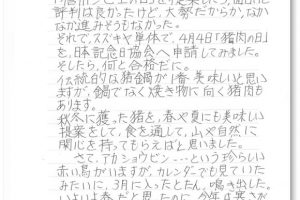 評判は良かったけど、大勢だからか、なか
なか進みそうもなかった。
それで、スズキヤ単体で、4月4日「猪肉の日」
を、日本記念日協会へ申請してみました。
そしたら、何と合格だに。
伝統的な猪鍋が1番美味しいと思い
ますが、鍋でなく焼き物に向く猪肉も
あります。
秋冬に獲った猪を、春や夏にも美味しい
提案をして、食を通して、山や自然に
関心を持ってもらえばと思いました。
さて、アカショウビン----という珍らしい
赤い鳥がいますが、カレンダーでも見ていた
みたいに、3月に入ったとたん、鳴き出した。
いよいよ春だと思したのに、今年は寒さが